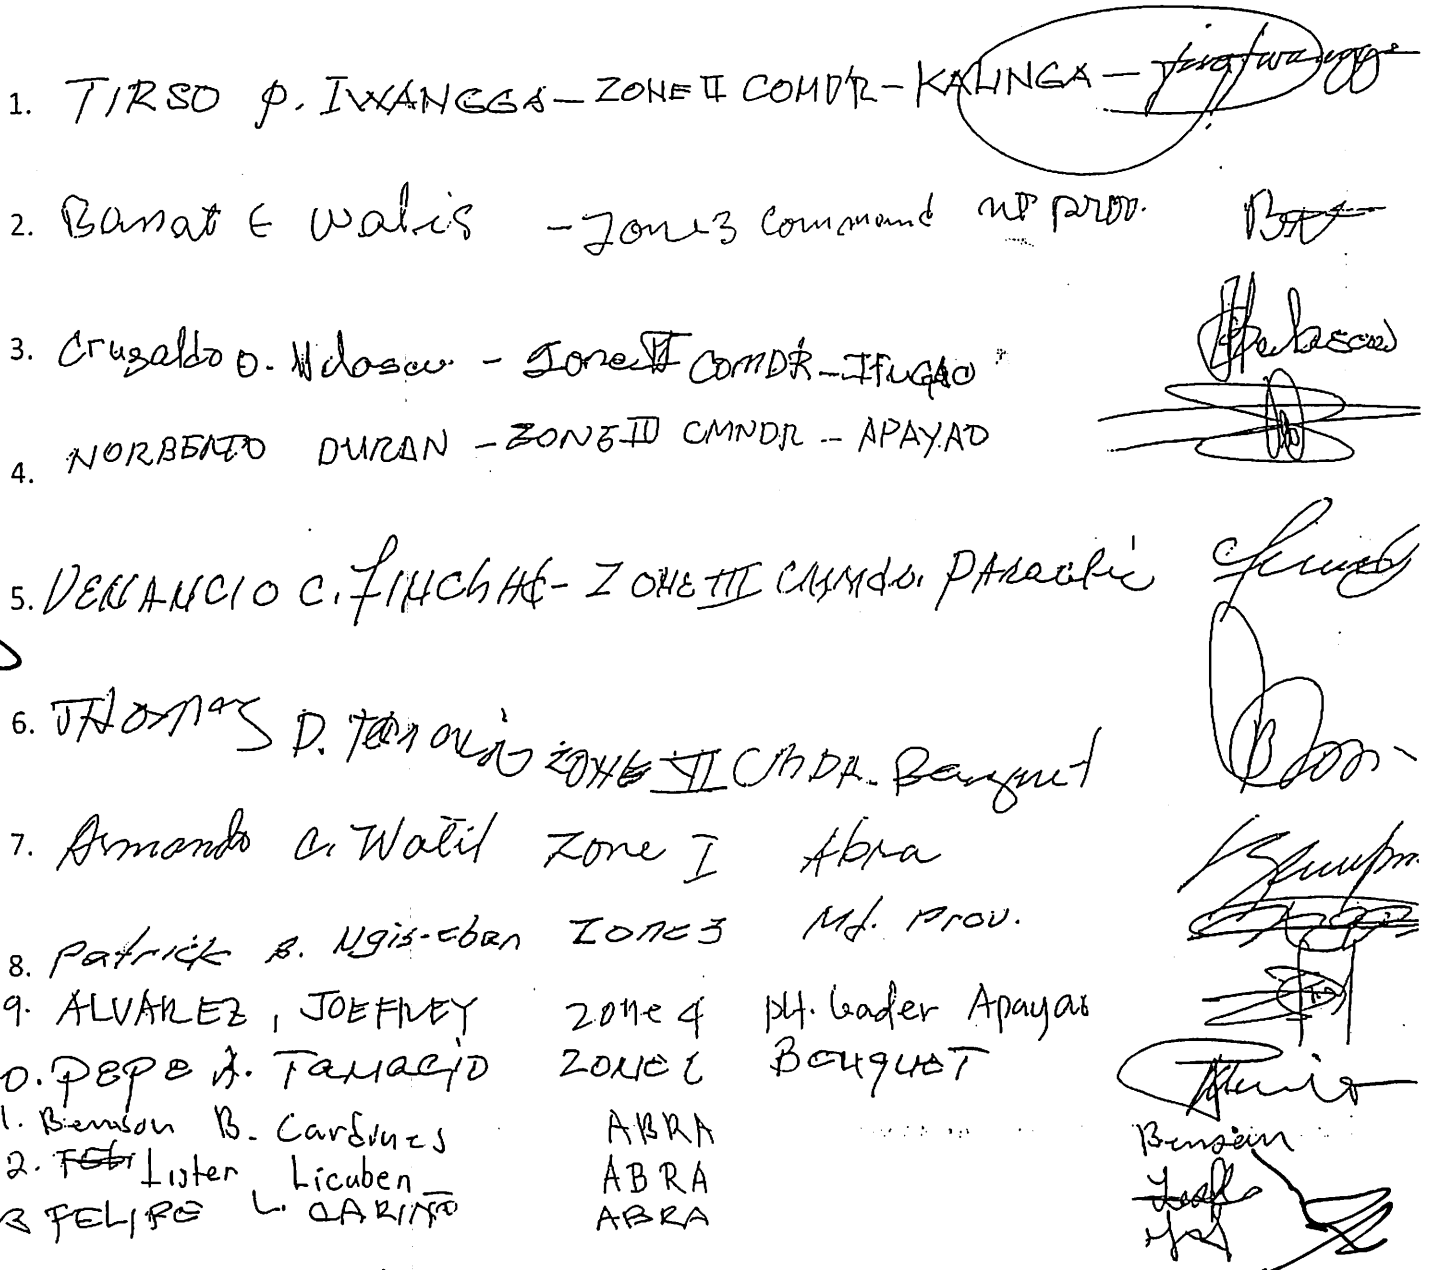 1. TIRSO P. IWANGGA - ZONE II COMDR - KALINGA -
2. Banat E Walis - Zone 3 Command MT prov.
3. Cruzaldo O. Velasco - Zone COMDR - IFUGAO
4. NORBERTO DURAN - ZONE IV CMNDR - APAYAO
5. VENANCIO C. - ZONE III
6. THOMAS D. ZONE VI CMDR. Benguet
7. Armando C. Watil Zone I Abra
8. Patrick B. Ngis-eban Zone 3 Mt. Prov.
9. ALVAREZ, JOEFREY zone 4 pH. leader Apayao
0. PEPE A. TANACIO ZONE BENGUET
1. Benson B. Cardines ABRA Bensein
2. Lister Licuben ABRA
3 FELIPE L. CARIÑO ABRA